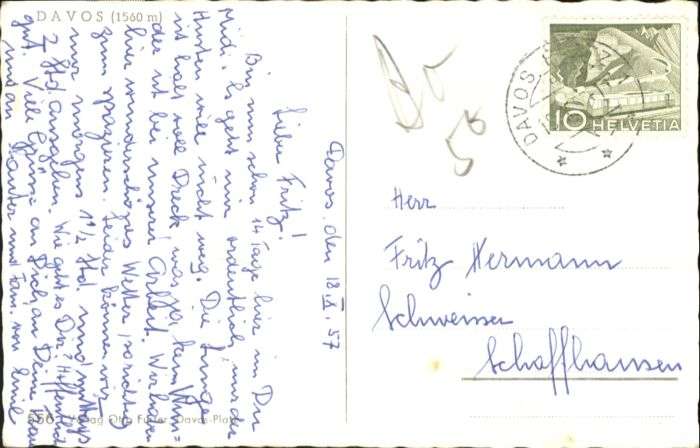 DAVOS (1560 m)
Davos, den 18. X. 57
Liebe Fritz!
Bin nun schon 14 Tage hier in Du
Midi. Es geht mir ordentlich, nur der
Husten will nicht weg. Die Lunge
ist halt voll Dreck, was ja kein Wun=
der ist bei unserer Arbeit. Wir haben
hier wunderschönes Wetter, so richtig
zum spazieren. Leider können wir
nur morgens 1½ Std und mittags
2 Std ausgehen. Wie geht es Dir? Hoffentlich
gut. Viel Grüsse an Dich, an Deine Frau
von Emil
556 Verlag Otto Furter, Davos-Platz
DAVOS
10 HELVETIA
50
Herr
Fritz Hermann
Schweisser
Schaffhausen